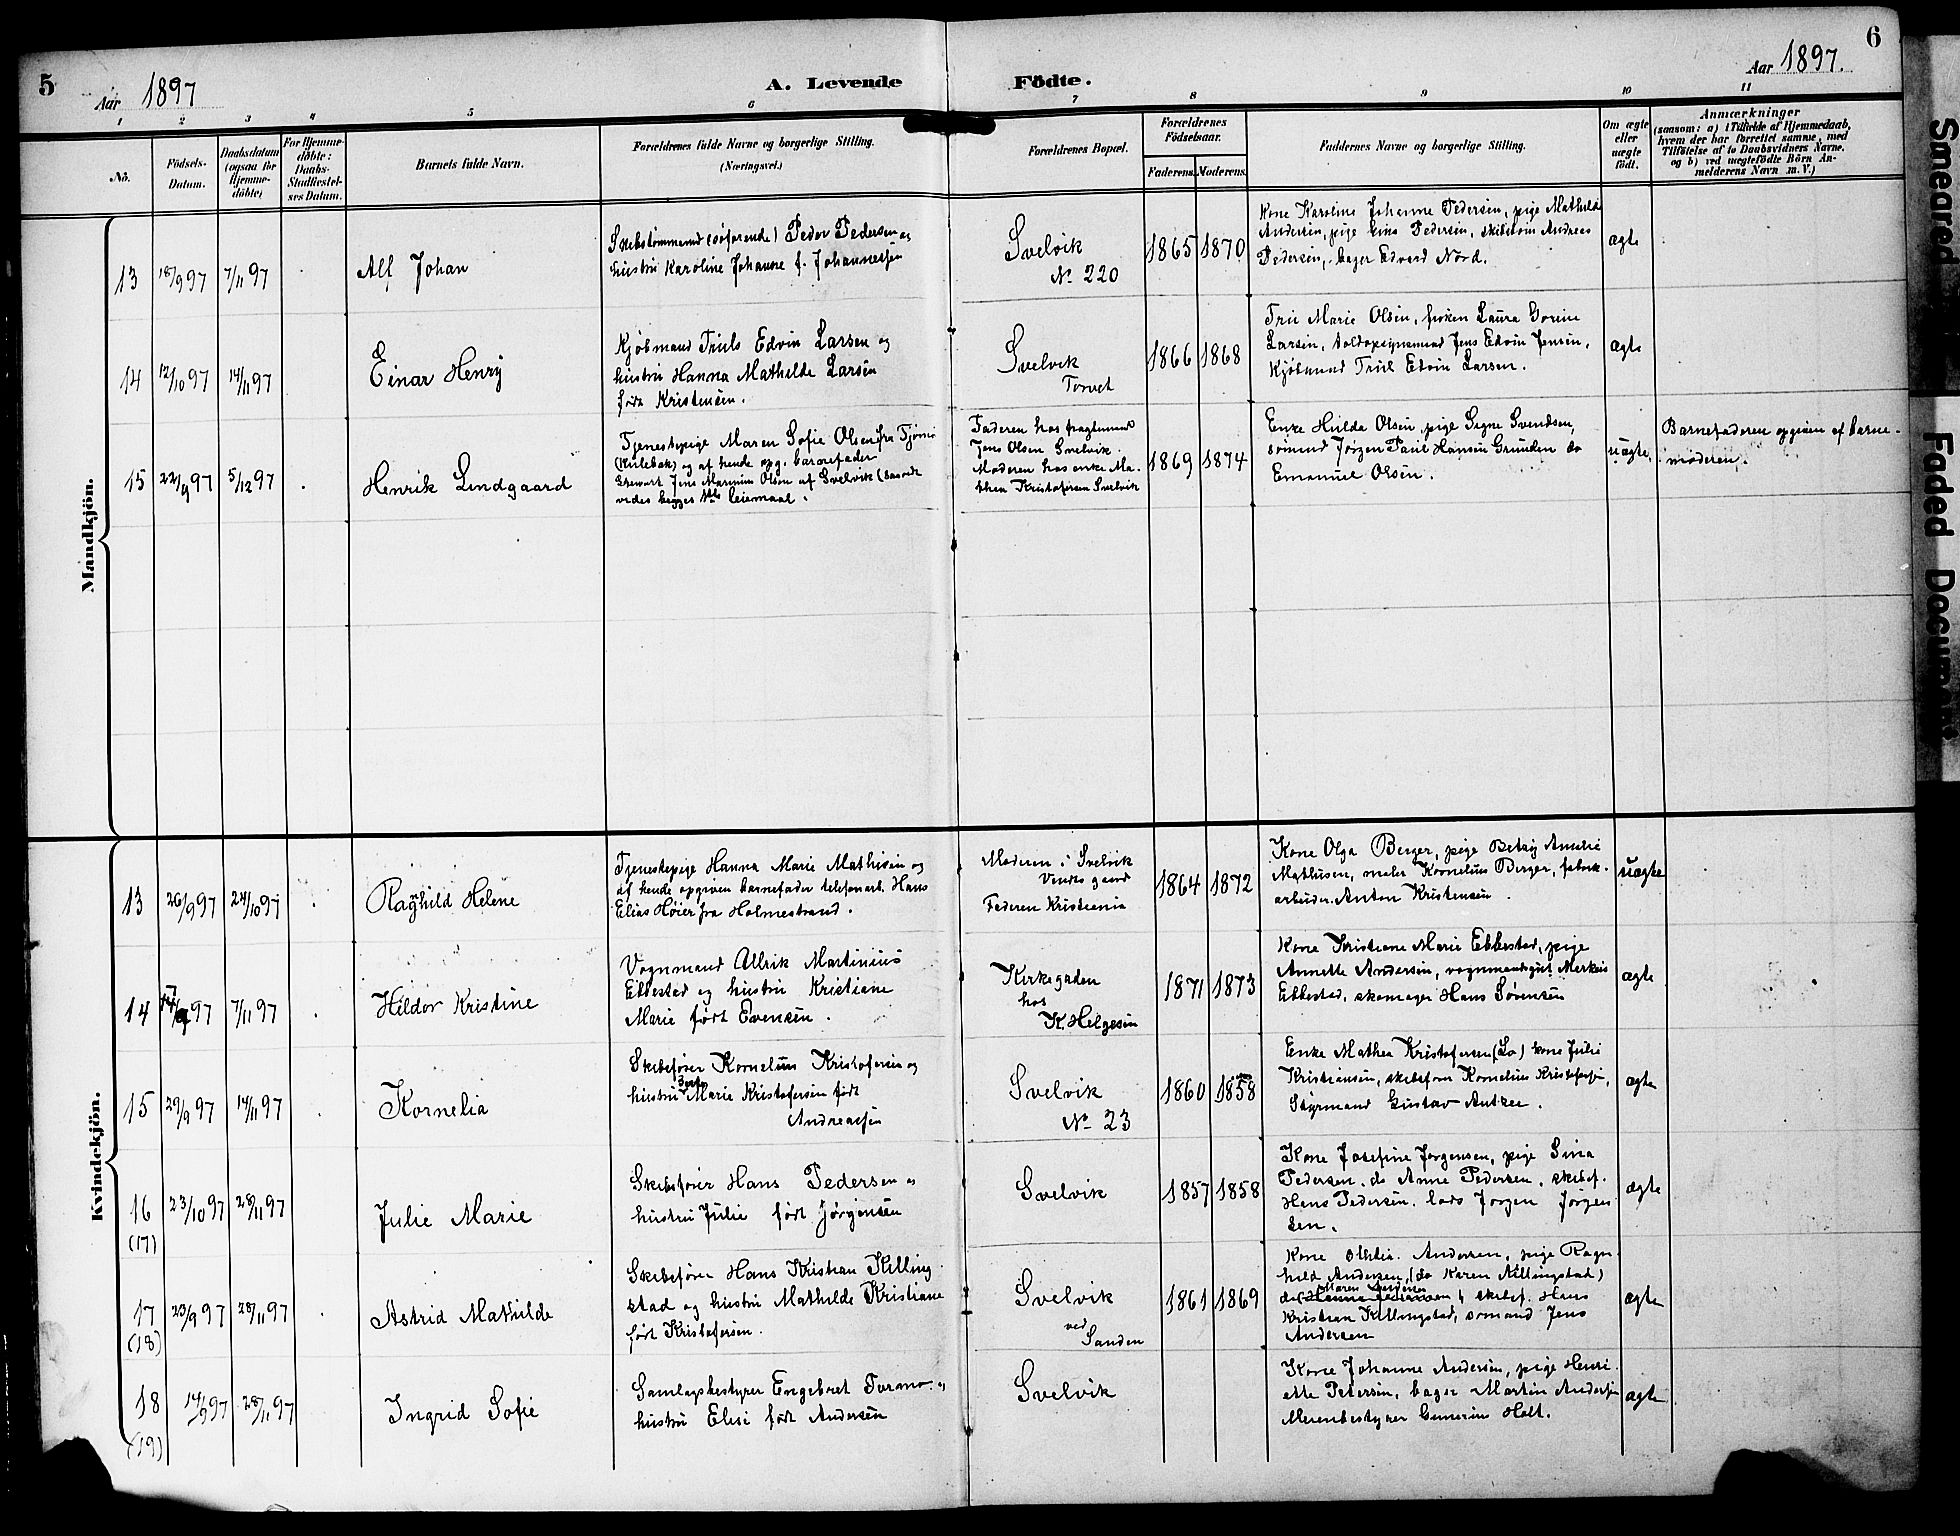 5
Aar 1897
A. Levende
Födte.
Aar 1897.
6
1 2 3 4 5 6 7 8 9 10 11
No.
Födsels-
Datum.
Daabsdatum
(ogsaa for
Hjemme-
döbte)
For Hjemme-
döbte:
Daabs-
Stadfæstel-
ses Datum.
Barnets fulde Navn.
Forældrenes fulde Navne og borgerlige Stilling.
(Næringsvei.)
Forældrenes Bopæl.
Forældrenes
Födselsaar.
Faderens. Moderens.
Faddernes Navne og borgerlige Stilling.
Om ægte
eller
uægte
födt.
Anmærkninger
(saasom: a) i Tilfælde af Hjemmedaab,
hvem der har forrettet samme, med
Tilföielse af to Daabsvidners Navne,
og b) ved uægtefödte Börn An-
melderens Navn m. V.)
Mandkjön.
13 18/9 97 7/11 97
Alf Johan
Skibstømmermand (søfarende) Peder Pedersen og
hustru Karoline Johanne f. Johannessen
Svelvik
No 220
1865 1870
Kone Karoline Johanne Pedersen, pige Mathilde
Andersen, pige Lina Pedersen, skibstøm Andreas
Pedersen, bager Edvard Nord.
ægte
14 12/10 97 14/11 97
Einar Henry
Kjøbmand Truls Edvin Larsen og
hustru Hanna Mathilde Larsen
født Kristensen.
Svelvik
Torvet
1866 1868
Frue Marie Olsen, frøken Laura Gorine
Larsen, toldopsynsmand Jens Edvin Jensen,
Kjøbmand Truls Edvin Larsen.
ægte
15 22/9 97 5/12 97
Henrik Lindgaard
Tjenestepige Maren Sofie Olsen fra Tjømø
(Kulebak) og af hende opg. barnefader
Stewart Jens Marinius Olsen af Svelvik (saavidt
vides begges 1ste leiermaal.
Faderen hos fragtemand
Jens Olsen Svelvik.
Moderen hos enke Ma-
thea Kristofersen Svelvik
1869 1874
Enke Hulda Olsen, pige Signe Svendsen,
sømand Jørgen Paul Hansen Grunden do
Emanuel Olsen.
uægte
Barnefaderen opgiven af barne-
moderen.
Kvindekjön.
13 26/9 97 24/10 97
Raghild Helene
Tjenestepige Hanna Marie Mathisen og
af hende opgiven barnefader telefonarb. Hans
Elias Høier fra Holmestrand.
Moderen i Svelvik
Faderen Kristiania
1864 1872
Kone Olga Berger, pige Betzy Amelie
Mathisen, maler Kornelius Berger, fabrik-
arbeider Anton Kristensen.
uægte
14 14/9 97 7/11 97
Hildor Kristine
Vognmand Alfrik Martinius
Ebbestad og hustru Kristiane
Marie født Evensen.
Kirkegaden
hos
K. Helgesen
1871 1873
Kone Kristiane Marie Ebbestad, pige
Annette Andersen, vognmandsgut Markus
Ebbestad, skomager Hans Sørensen
ægte
15 29/9 97 14/11 97
Kornelia
Skibsfører Kornelius Kristofersen og
hustru Marie Kristofersen født
Andreassen
Svelvik
No 23
1860 1858
Enke Mathea Kristofersen (Lo) kone Julie
Kristiansen, skibsfører Kornelius Kristofersen,
Styrmand Gustav Antzee.
ægte
16
(17)
23/10 97 28/11 97
Julie Marie
Skibsfører Hans Pedersen og
hustru Julie født Jørgensen
Svelvik
1857 1858
Kone Josefine Jørgensen, pige Sina
Pedersen, do Anne Pedersen, skibsf.
Hans Pedersen, lods Jørgen Jørgen
sen.
ægte
17
(18)
23/9 97 28/11 97
Astrid Mathilde
Skibsfører Hans Kristian Killing
stad og hustru Mathilde Kristiane
født Kristofersen.
Svelvik
ved
Sanden
1861 1869
Kone Othilia Andersen, pige Ragn-
hild Andersen, (do Karen Killingstad)
skibsf. Hans
Kristian Killingstad, sømand Jens
Andersen
ægte
18
(19)
14/9 97 28/11 97
Ingrid Sofie
Samlagsbestyrer Engebret Tormo. og
hustru Elise født Andersen
Svelvik
Kone Johanne Andersen, pige Henri-
ette Petersen, bager Martin Andersen
Meieribestyrer Gunerius Holt.
ægte
Smeared
Faded Document